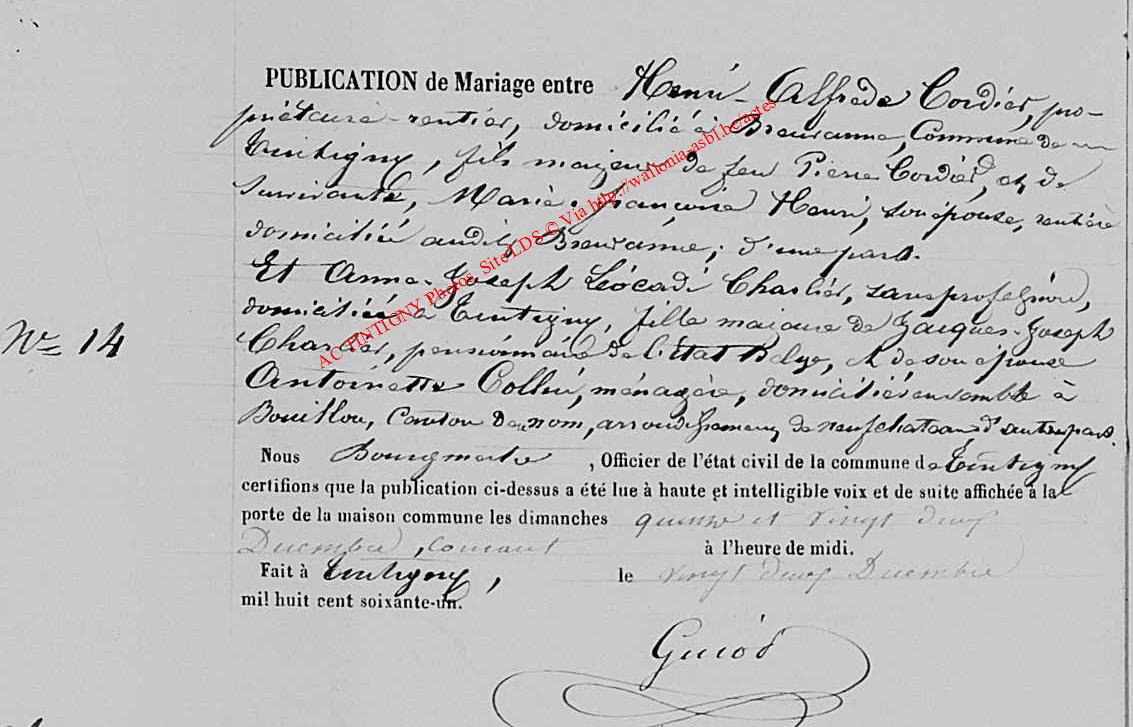 PUBLICATION de Mariage entre Henri-Alfrède Cordier, pro-
priétaire-rentier, domicilié à Breuvanne, Commune de
Tintigny, fils majeur de feu Pierre Cordier, et de
survivante, Marie-Françoise Henri, son épouse, rentière
domiciliée audit Breuvanne; d'une part.
Et Anne-Joseph Léocadie Charlier, sans profession,
domiciliée à Tintigny, fille majeure de Jacques-Joseph
Nº 14
Charlier, pensionnaire de l'état Belge, et de son épouse
Antoinette Collin, ménagère, domiciliés ensemble à
Bouillon, Canton de nom, arrondissement de neufchateau d'autre part.
Nous Bourgmestre, Officier de l'état civil de la commune de Tintigny
certifions que la publication ci-dessus a été lue à haute et intelligible voix et de suite affichée à la
porte de la maison commune les dimanches quinze et vingt deux
Décembre, courant à l'heure de midi.
Fait à Tintigny, le vingt deux Décembre
mil huit cent soixante-un.
Guiot
AC TINTIGNY Photos Site LDS © Via http://wallonia-asbl.be/actes